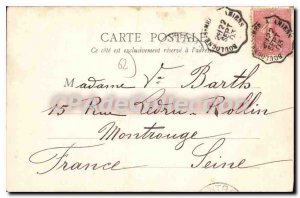 CARTE POSTALE
Ce côté est exclusivement réservé à l'adresse
62
Madame Vve Barths
15 Rue Ledru-Rollin
Montrouge
France Seine